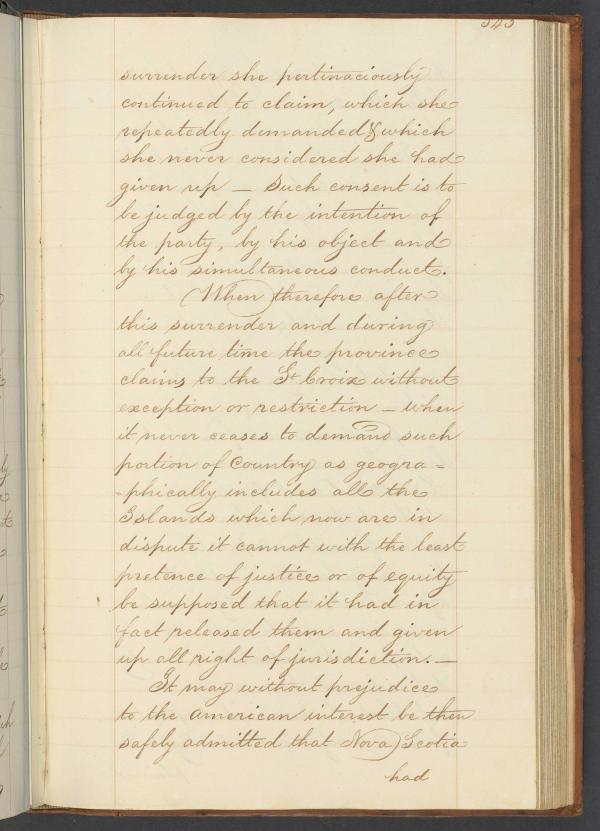 surrender she pertinaciously
continued to claim, which she
repeatedly demanded & which
she never considered she had
given up — Such consent is to
be judged by the intention of
the party, by his object and
by his simultaneous conduct.
When therefore after
this surrender and during
all future time the province
claims to the St Croix without
exception or restriction — when
it never ceases to demand such
portion of Country as geogra=
-phically includes all the
Islands which now are in
dispute it cannot with the least
pretence of justice or of equity
be supposed that it had in
fact released them and given
up all right of jurisdiction. —
It may without prejudice
to the american interest be then
safely admitted that Nova Scotia
had